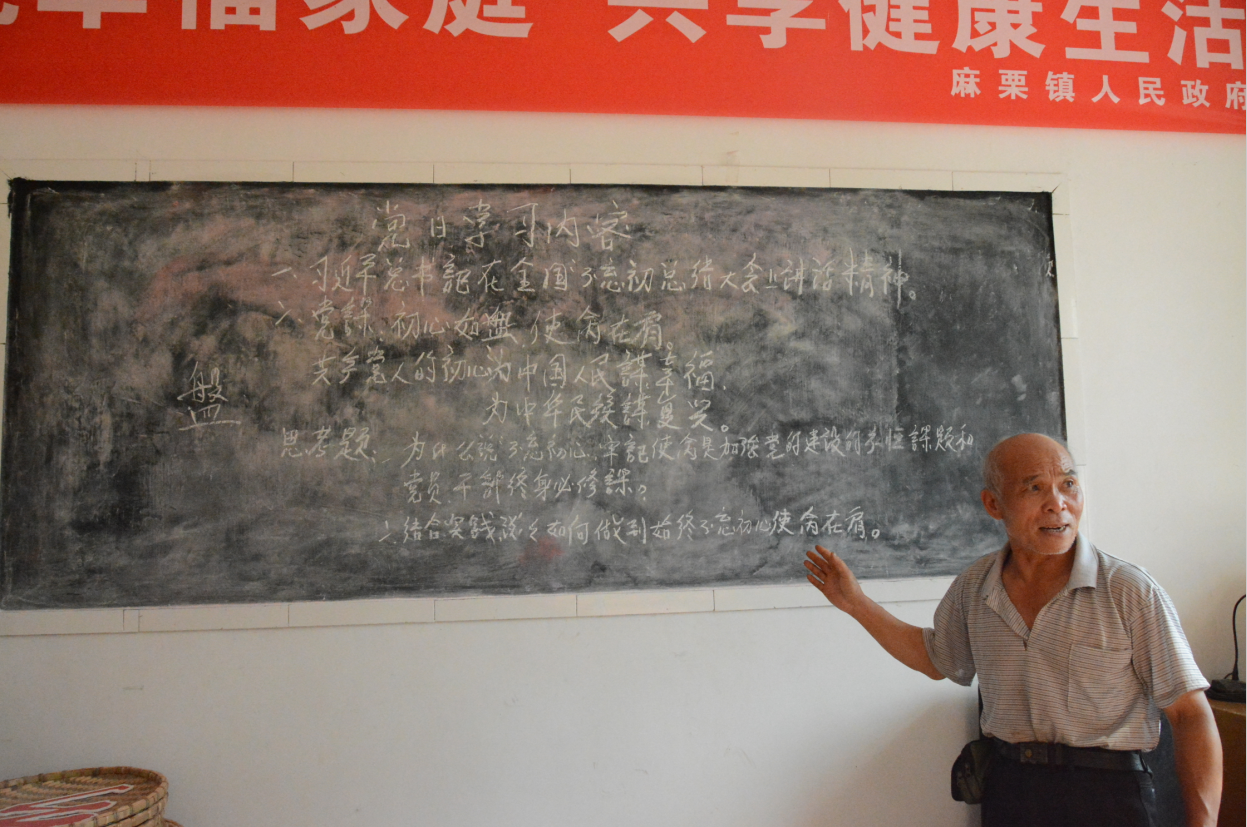 幸福家庭 共享健康生活
麻栗镇人民政府
党日学习内容
一、习近平总书記在全国不忘初总结大会上讲话精神。
二、党課、初心如盤 使命在肩。
共产党人的初心为中国人民謀幸福、
盤
为中华民族謀复兴。
思考题、一为什么说不忘初心、牢記使命是加强党的建设的永恒課题和
党员干部终身必修課。
二、结合实践谈々如何做到始终不忘初心使命在肩。